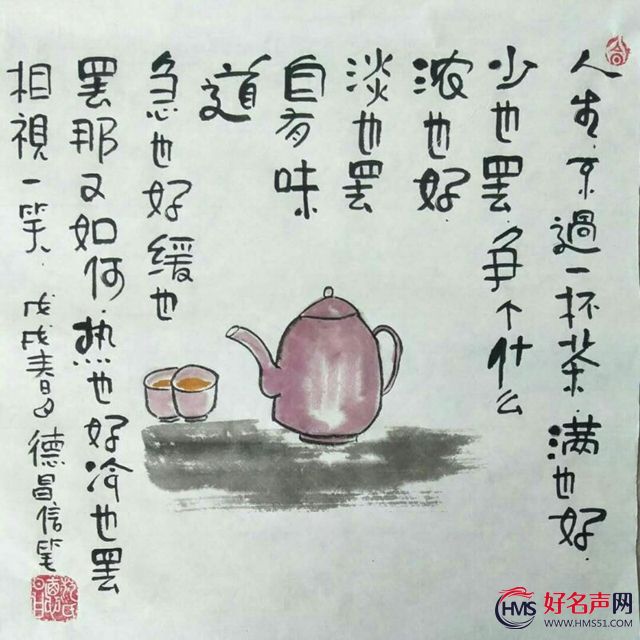 人生.不過一杯茶.满也好.
少也罢.争个什么
浓也好.
淡也罢
自有味
道
急也好缓也
罢那又如何.热也好冷也罢
相視一笑.戊戌春日德昌信笔
HMS 好名声网
WWW.HMS51.COM